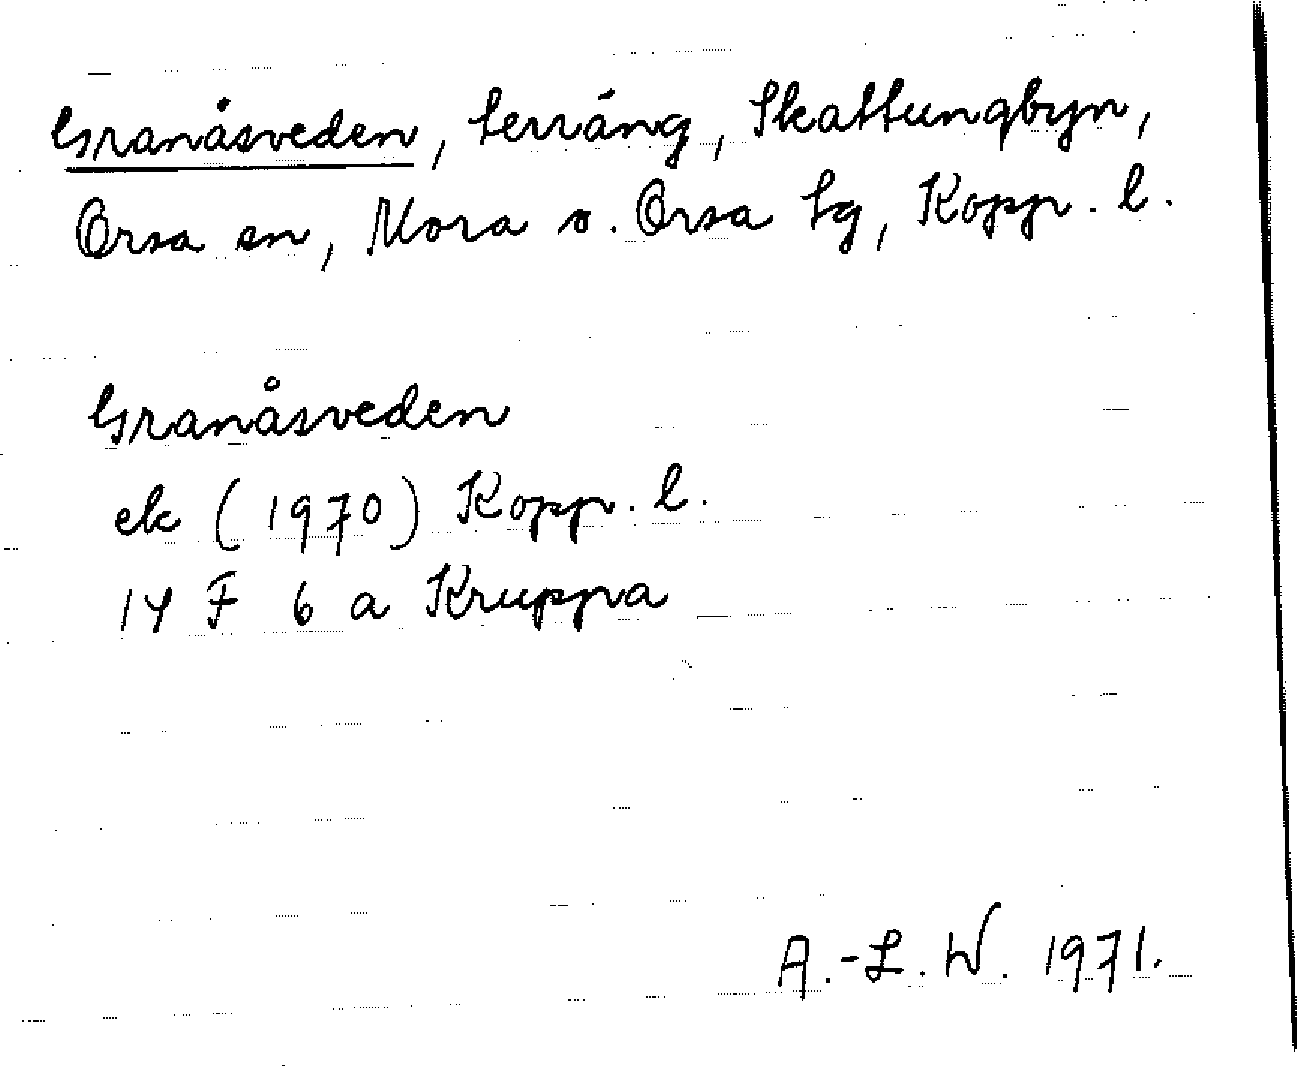 Granåsveden, terräng, Skattungbyn,
Orsa sn, Mora o. Orsa tg, Kopp. l.
Granåsveden
ek (1970) Kopp. l.
14 F 6 a Kruppa
A.-L. W. 1971.